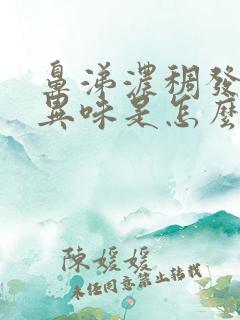 鼻涕濃稠發
異味是怎麼
陳媛媛
未经同意禁止转载